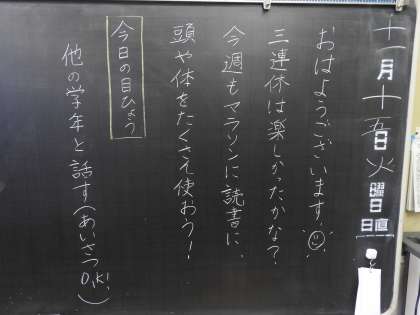 十一月十五日火曜日
日直
おはようございます。☺
三連休は楽しかったかな?
今週もマラソンに読書に、
頭や体をたくさん使おう!
今日の目ひょう
他の学年と話す(あいさつO.K!)